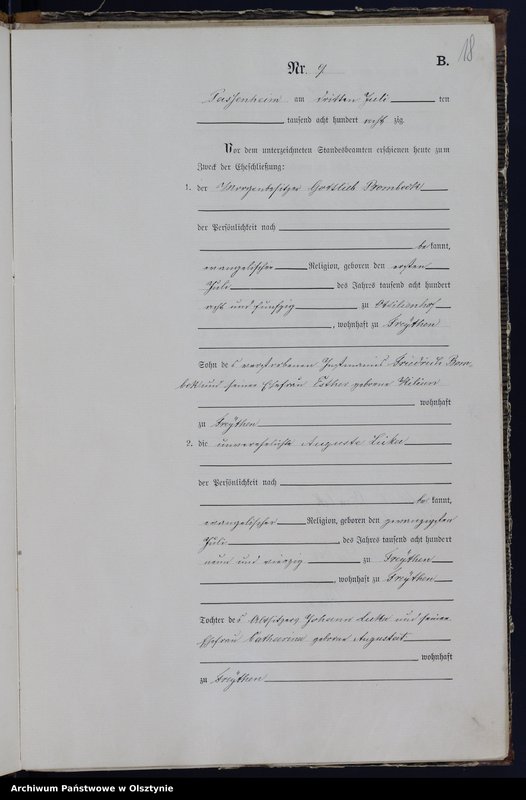 18
B.
Nr. 9
Passenheim am dritten Juli ten
tausend acht hundert acht zig.
Vor dem unterzeichneten Standesbeamten erschienen heute zum
Zweck der Eheschließung:
1. der Morgenbesitzer Gottlieb Bombeck
der Persönlichkeit nach
be kannt,
evangelischer Religion, geboren den ersten
Juli des Jahres tausend acht hundert
acht und fünfzig zu Ottilienhof
, wohnhaft zu Freythen
Sohn des verstorbenen Instmanns Friedrich Bom-
beck und seiner Ehefrau Esther geborne
wohnhaft
zu Freythen
2. die unverehelichte Auguste
der Persönlichkeit nach
be kannt,
evangelischer Religion, geboren den zwanzigsten
Juli des Jahres tausend acht hundert
neun und vierzig zu Freythen
, wohnhaft zu Freythen
Tochter des Altsitzers Johann und seiner
Ehefrau Catharina geborne
wohnhaft
zu Freythen
Archiwum Państwowe w Olsztynie